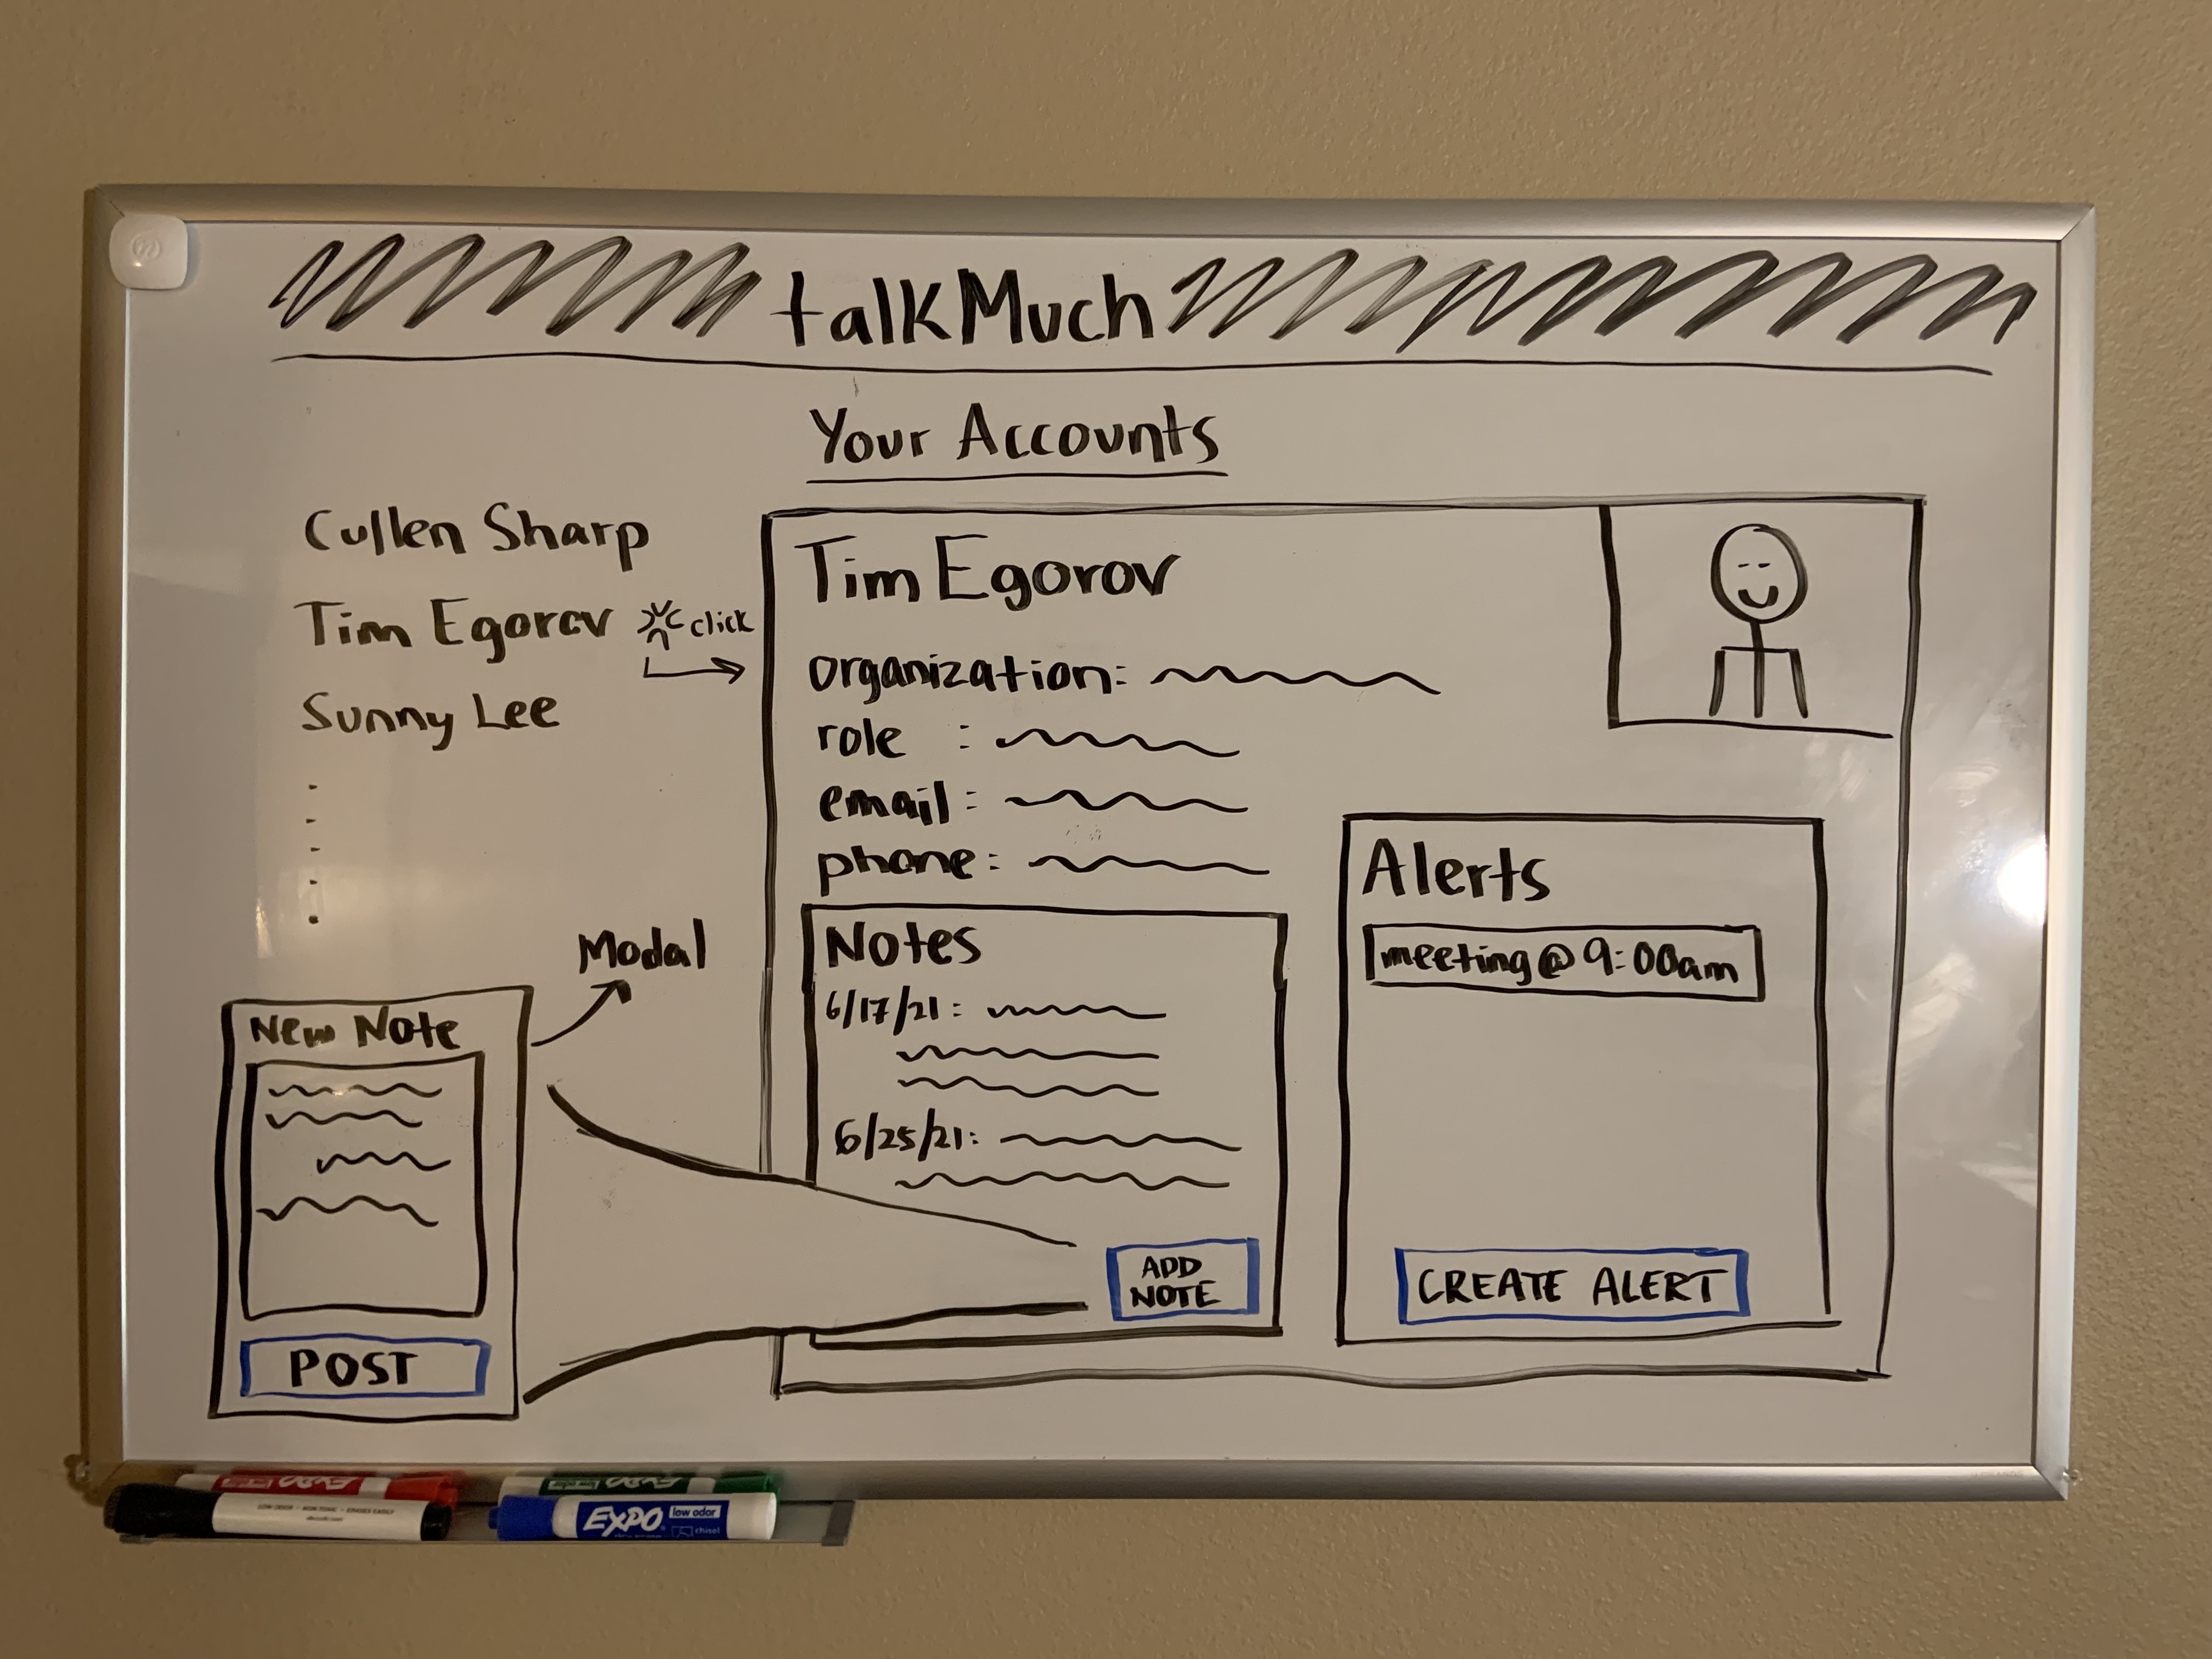 talkMuch
Your Accounts
Cullen Sharp
Tim Egorov
click
Sunny Lee
Tim Egorov
organization:
role :
email :
phone :
Notes
6/17/21 :
6/25/21:
ADD
NOTE
Alerts
meeting@9:00am
CREATE ALERT
Modal
New Note
POST
EXPO
low odor
chisel